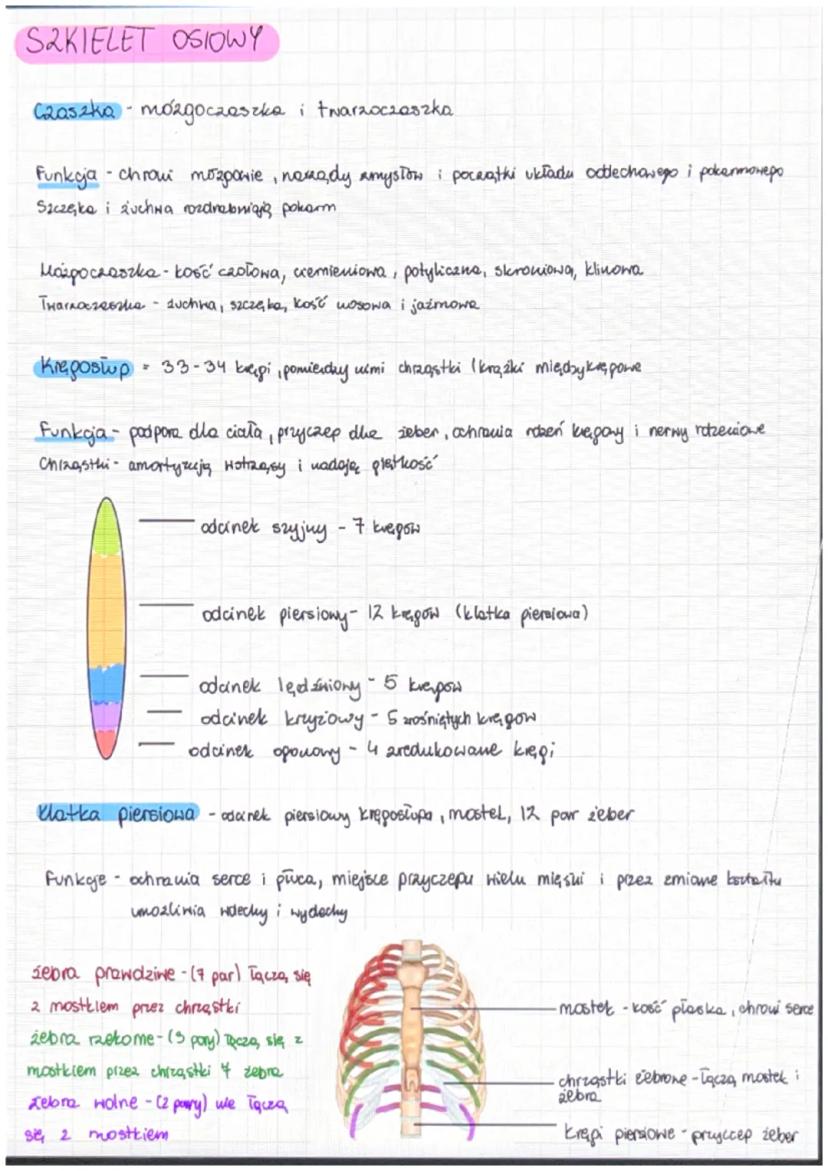 SZKIELET OSIOWY
Czaszka - mózgoczaszka i twarzoczaszka
Funkcja - chroni mózgowie, narządy zmysłów i początki układu oddechowego i pokarmowego
Szczęka i żuchwa rozdrabniają pokarm
Mózgoczaszka - kość czołowa, ciemieniowa, potyliczna, skroniowa, klinowa
Twarzoczaszka - żuchwa, szczęka, kość nosowa i jarzmowa
Kręgosłup = 33-34 kręgi, pomiędzy nimi chrząstki (krążki międzykręgowe
Funkcja - podpora dla ciała, przyczep dla żeber, ochrania rdzeń kręgowy i nerwy rdzeniowe
Chrząstki - amortyzują wstrząsy i nadają giętkość
odcinek szyjny - 7 kręgów
odcinek piersiowy - 12 kręgów (klatka piersiowa)
odcinek lędźwiowy - 5 kręgów
odcinek krzyżowy - 5 zrośniętych kręgów
odcinek ogonowy - 4 zredukowane kręgi
Klatka piersiowa - odcinek piersiowy kręgosłupa, mostek, 12 par żeber
Funkcje - ochrania serce i płuca, miejsce przyczepu wielu mięśni i przez zmianę kształtu
umożliwia wdechy i wydechy
żebra prawdziwe - (7 par) łączą się
z mostkiem przez chrząstki
żebra rzekome - (3 pary) łączą się z
mostkiem przez chrząstki 7 żebra
żebra wolne - (2 pary) nie łączą
się z mostkiem
mostek - kość płaska, chroni serce
chrząstki żebrowe - łączą mostek i
żebra
kręgi piersiowe - przyczep żeber